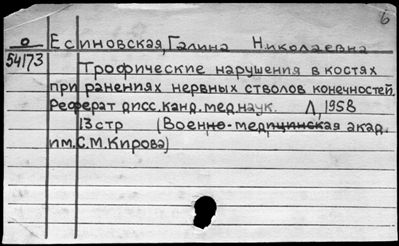 6
О Есиновская, Галина Николаевна
54173 Трофические нарушения в костях
при ранениях нервных стволов конечностей.
Реферат дисс. канд. мед. наук. Л, 1958
13 стр (Военно-медицинская акад.
им. С. М. Кирова)